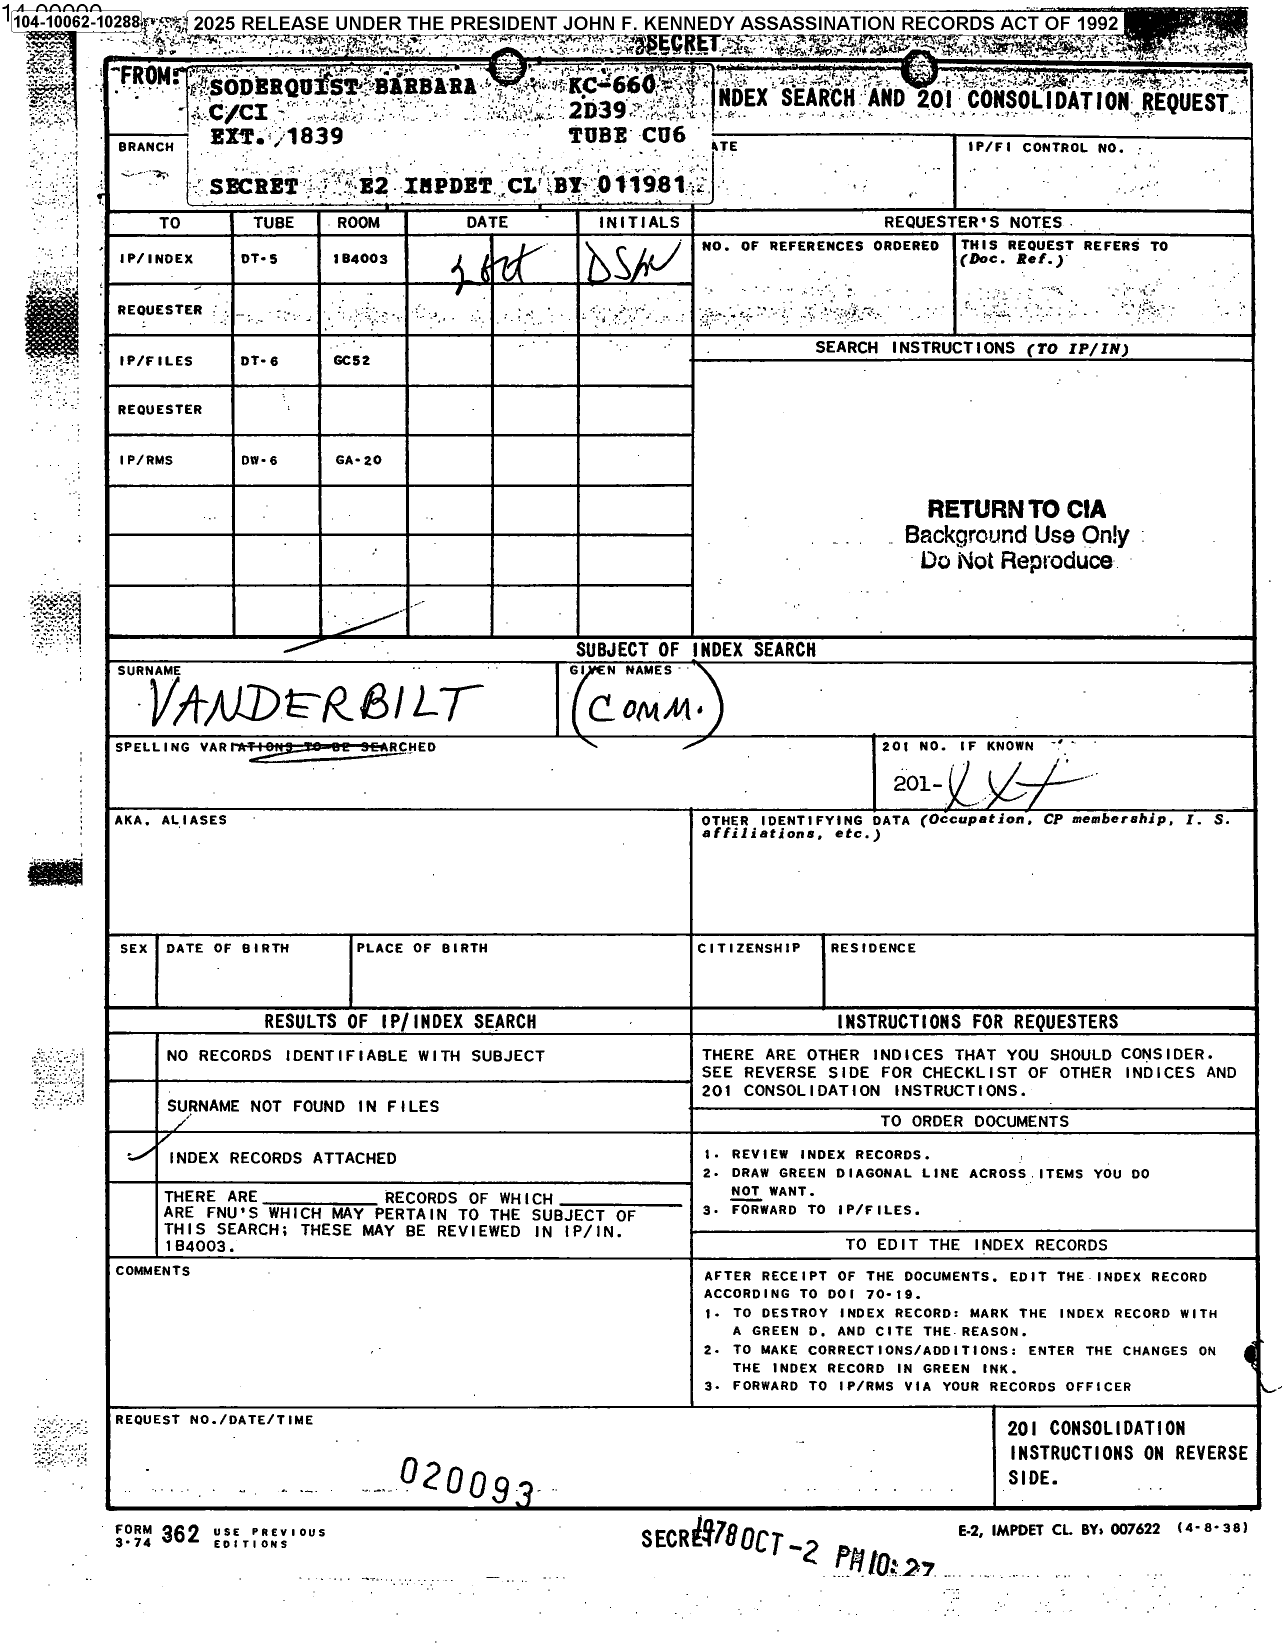 14-00000
104-10062-10288
2025 RELEASE UNDER THE PRESIDENT JOHN F. KENNEDY ASSASSINATION RECORDS ACT OF 1992
SECRET
FROM:
SODERQUIST BARBARA KC-660
C/CI 2D39
EXT. 1839 TUBE CU6
SECRET E2 IMPDET CL BY 011981
NDEX SEARCH AND 201 CONSOLIDATION REQUEST
BRANCH
ATE
IP/FI CONTROL NO.
TO TUBE ROOM DATE INITIALS
REQUESTER'S NOTES
IP/INDEX DT-5 1B4003 2 Oct DSW
NO. OF REFERENCES ORDERED
THIS REQUEST REFERS TO
(Doc. Ref.)
REQUESTER
IP/FILES DT-6 GC52
SEARCH INSTRUCTIONS (TO IP/IN)
REQUESTER
IP/RMS DW-6 GA-20
RETURN TO CIA
Background Use Only
Do Not Reproduce
SUBJECT OF INDEX SEARCH
SURNAME
VANDERBILT
GIVEN NAMES
(COMM.)
SPELLING VARIATIONS TO BE SEARCHED
201 NO. IF KNOWN
201-XXX
AKA. ALIASES
OTHER IDENTIFYING DATA (Occupation, CP membership, I. S.
affiliations, etc.)
SEX DATE OF BIRTH PLACE OF BIRTH CITIZENSHIP RESIDENCE
RESULTS OF IP/INDEX SEARCH
NO RECORDS IDENTIFIABLE WITH SUBJECT
SURNAME NOT FOUND IN FILES
INDEX RECORDS ATTACHED
THERE ARE ________ RECORDS OF WHICH ________
ARE FNU'S WHICH MAY PERTAIN TO THE SUBJECT OF
THIS SEARCH; THESE MAY BE REVIEWED IN IP/IN.
1B4003.
COMMENTS
INSTRUCTIONS FOR REQUESTERS
THERE ARE OTHER INDICES THAT YOU SHOULD CONSIDER.
SEE REVERSE SIDE FOR CHECKLIST OF OTHER INDICES AND
201 CONSOLIDATION INSTRUCTIONS.
TO ORDER DOCUMENTS
1. REVIEW INDEX RECORDS.
2. DRAW GREEN DIAGONAL LINE ACROSS ITEMS YOU DO
NOT WANT.
3. FORWARD TO IP/FILES.
TO EDIT THE INDEX RECORDS
AFTER RECEIPT OF THE DOCUMENTS. EDIT THE INDEX RECORD
ACCORDING TO DOI 70-19.
1. TO DESTROY INDEX RECORD: MARK THE INDEX RECORD WITH
A GREEN D. AND CITE THE REASON.
2. TO MAKE CORRECTIONS/ADDITIONS: ENTER THE CHANGES ON
THE INDEX RECORD IN GREEN INK.
3. FORWARD TO IP/RMS VIA YOUR RECORDS OFFICER
REQUEST NO./DATE/TIME
020093
201 CONSOLIDATION
INSTRUCTIONS ON REVERSE
SIDE.
FORM 3-74 362 USE PREVIOUS EDITIONS
SECRET
1978 OCT -2 PM 10:27
E-2, IMPDET CL. BY: 007622 (4-8-38)